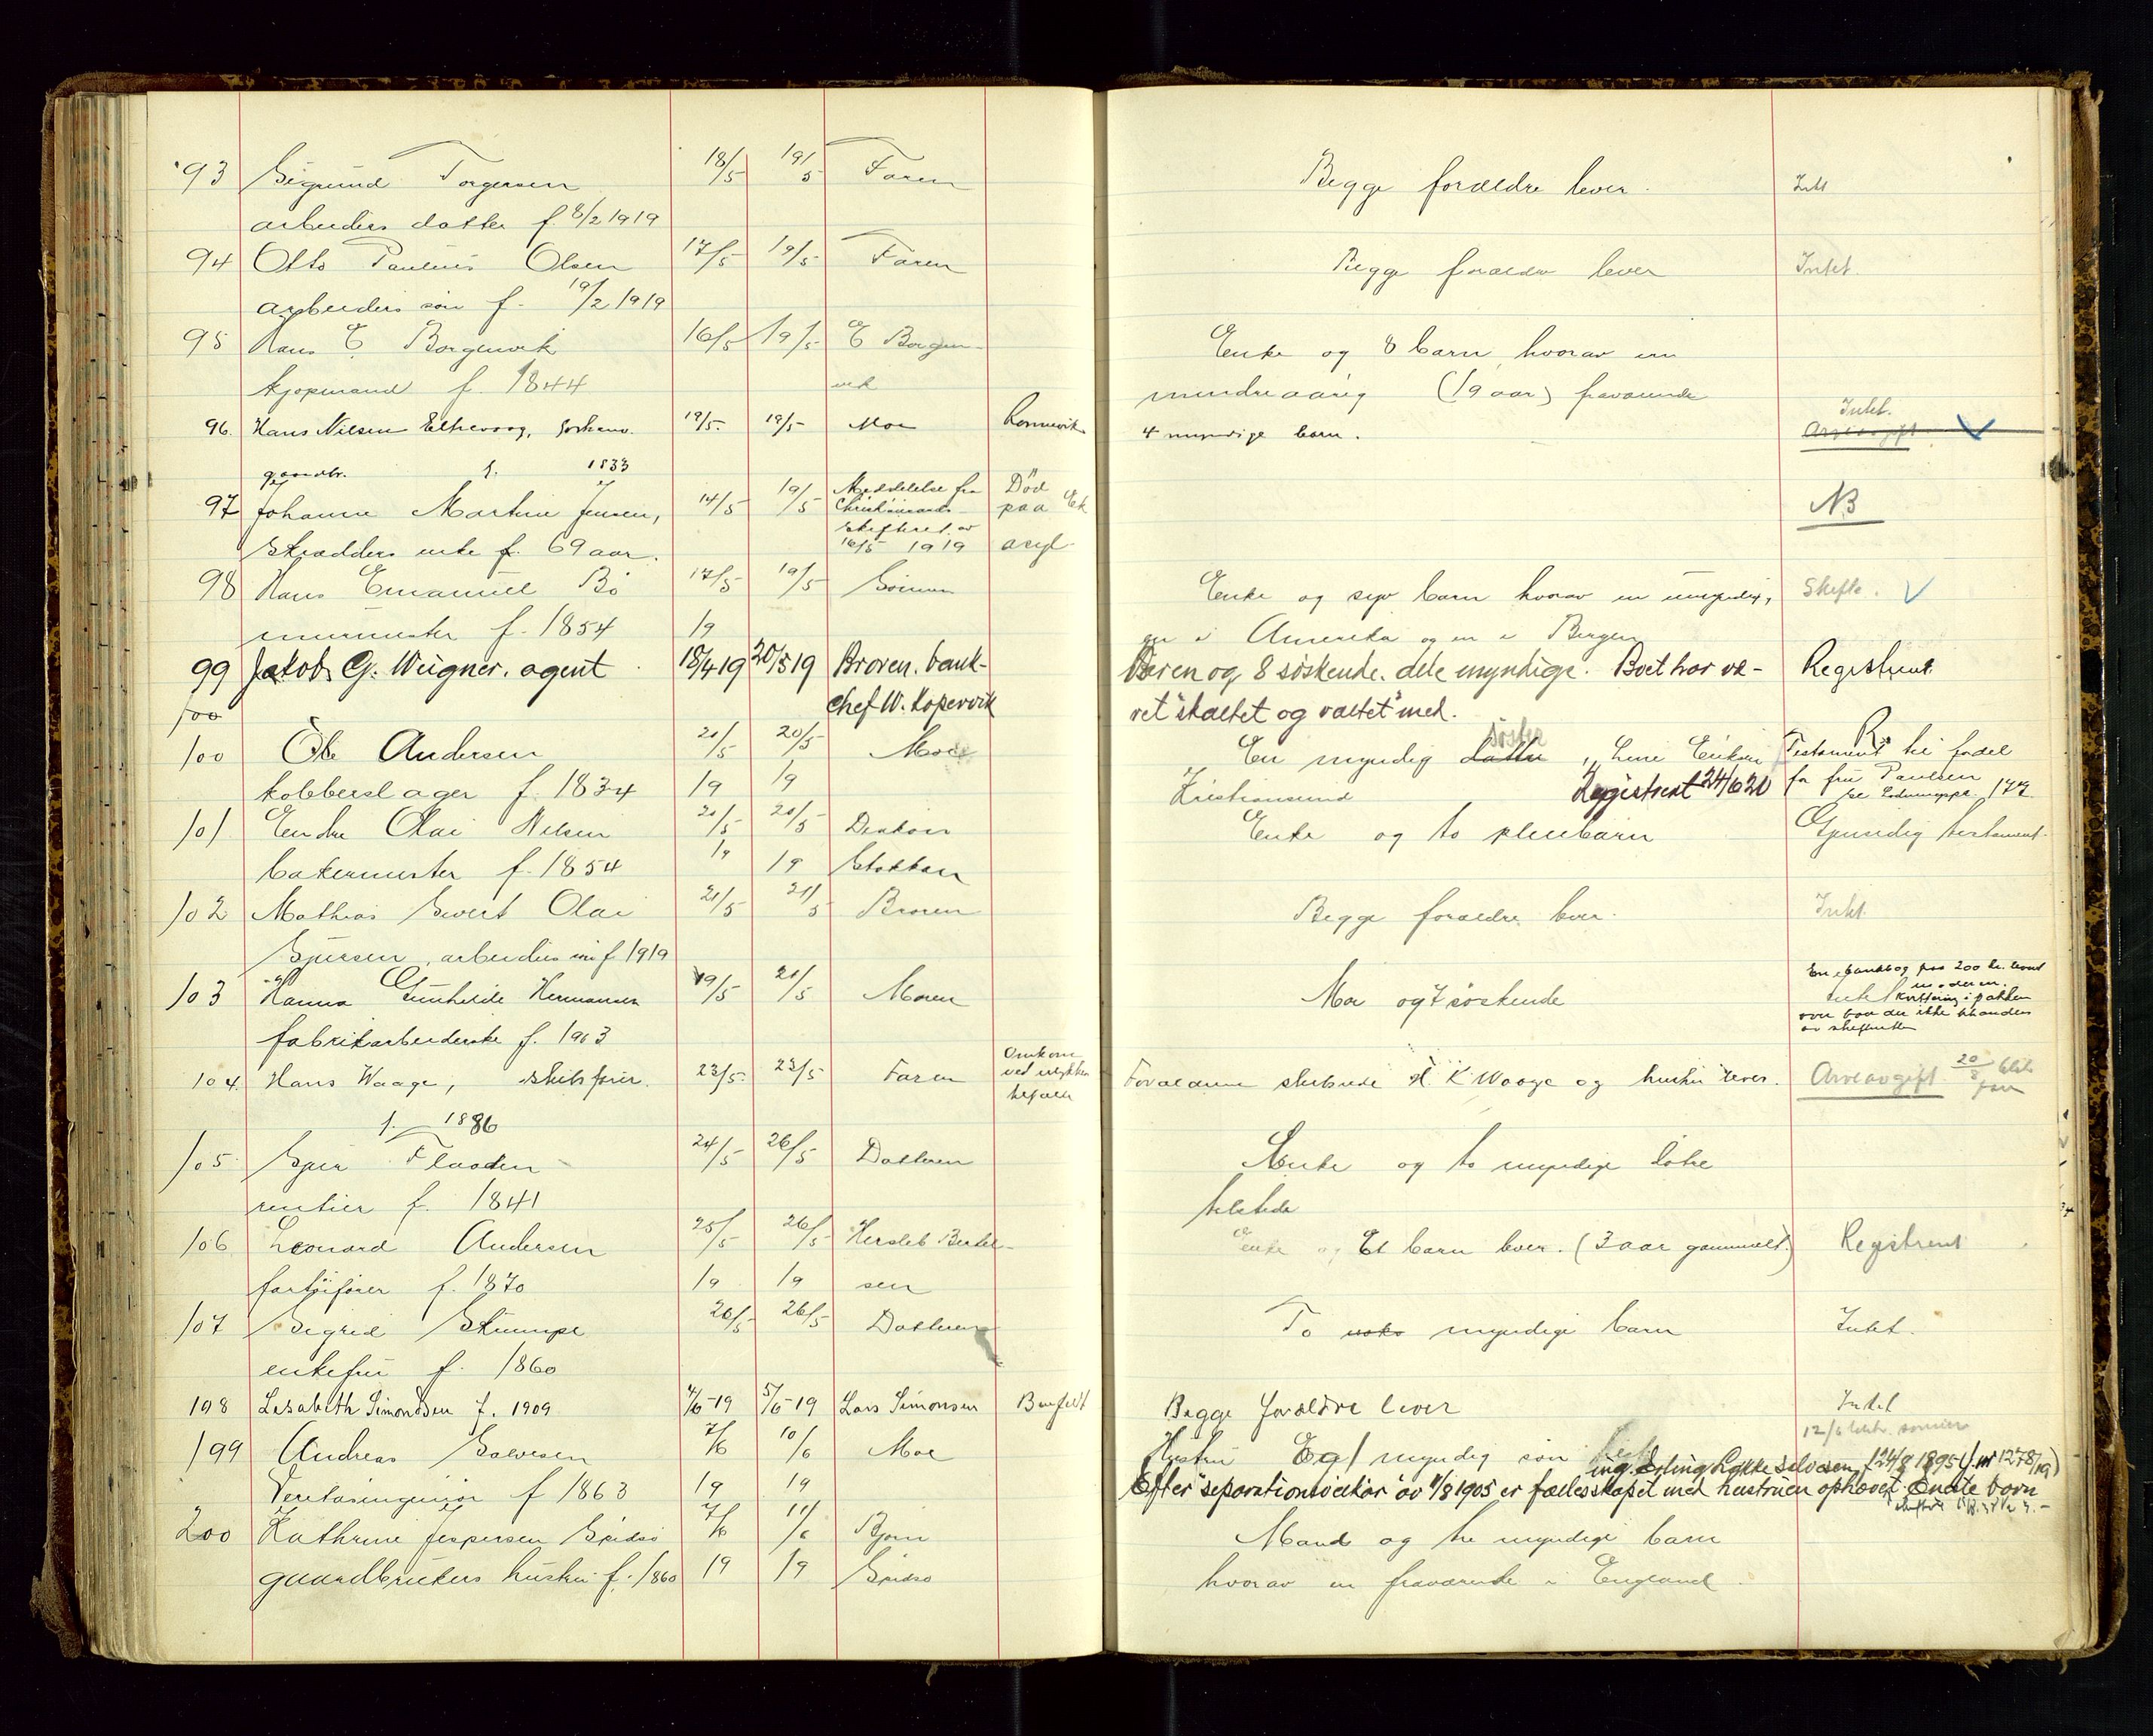 93 Sigrund Torgersen 18/5 19/5 Faren Begge forældre lever. Intet
arbeiders datter f. 8/2 1919
94 Otto Paulius Olsen 17/5 19/5 Faren Begge forældre lever Intet.
arbeiders søn f. 19/2 1919
95 Hans E. Borgenvik 16/5 19/5 E Borgen- Enke og 8 barn hvorav en
kjøpmand f. 1844 vik mindreaarig (19 aar) fraværende
96. Hans Nilsen 19/5. 19/5 Moe 4 myndige barn. Intet. Arveavgift
gaardbr. f. 1833
97 Johanne Martine Jensen, 14/5 19/5 Meddelelse fra Christianssands skifteret av 16/5 1919 Død paa asyl NB
skrædders enke f. 69 aar.
98 Hans Emanuel Bø 17/5 19/5 Sønnen Enke og syv barn hvorav en umyndig, Skifte.
murmester f. 1854 19 en i Amerika og en i Bergen
99 Jakob G. Weigner. agent 18/4 19 20/5 19 Broren. bank- Moren og 8 søskende. dele myndige. Boet har væ- Registrent
100 chef W. Kopervik ret "skaltet og valtet" med.
100 Ole Andersen 20/5 20/5 Moe En myndig datter søster, Lene Eriksen Testament til fordel
kobberslager f. 1834 19 19 Kristiansund Registrert 24/6 20 for fru Paulsen
101 Endre Olai Nilsen 20/5 20/5 Diakon Enke og to pleiebarn Gjensidig testament.
bakermester f. 1854 19 19 Stokkan
102 Mathias Sivert Olai 21/5 21/5 Broren Begge forældre lever. Intet.
Sjursen, arbeiders søn f 1919
103 Hanna Gunhilde Hermansen 19/5 21/5 Moren Mor og 7 søskende En bankbog paa 200 kr. levert moderen. Kvittering i pakken over boer der ikke behandles av skifteretten
fabrikarbeiderske f. 1903
104. Hans Waage, skibsfører. 23/5. 23/5 Faren Omkom ved ulykkestilfælde Forældrene skibsrede H. K Waage og hustru lever. Arveavgift 20/8
f. 1886
105 Sjur Flaaden 24/5 26/5 Datteren Enke og to myndige døtre
rentier f. 1841 tilstede
106 Leonard Andersen 25/5 26/5 Hersleb Bertel- Enke og Et barn lever. (3 aar gammelt.) Registrent
fartøifører f. 1870 19 19 sen
107 Sigrid Stumpe 26/5 26/5 Datteren To myndige barn Intet.
enkefru f. 1860
108 Lisabeth Simondsen f. 1909 4/6-19 5/6-19 Lars Simonsen Begge forældre lever Intet
199 Andreas Salvesen 7/6 10/6 Moe Hustru Og 1 myndig søn ing. Erling Lykke Salvesen f 24/8 1895
f 1863 19 19 Efter "separationsvilkår" av 11/8 1905 er fællesskapet med hustruen ophævet. Eneste barn
200 Kathrine Jespersen Spidsø 7/6 11/6 Bjørn Mand og tre myndige barn
gaardbrukers hustru f. 1860 19 19 Spidsø hvorav en fraværende i England.